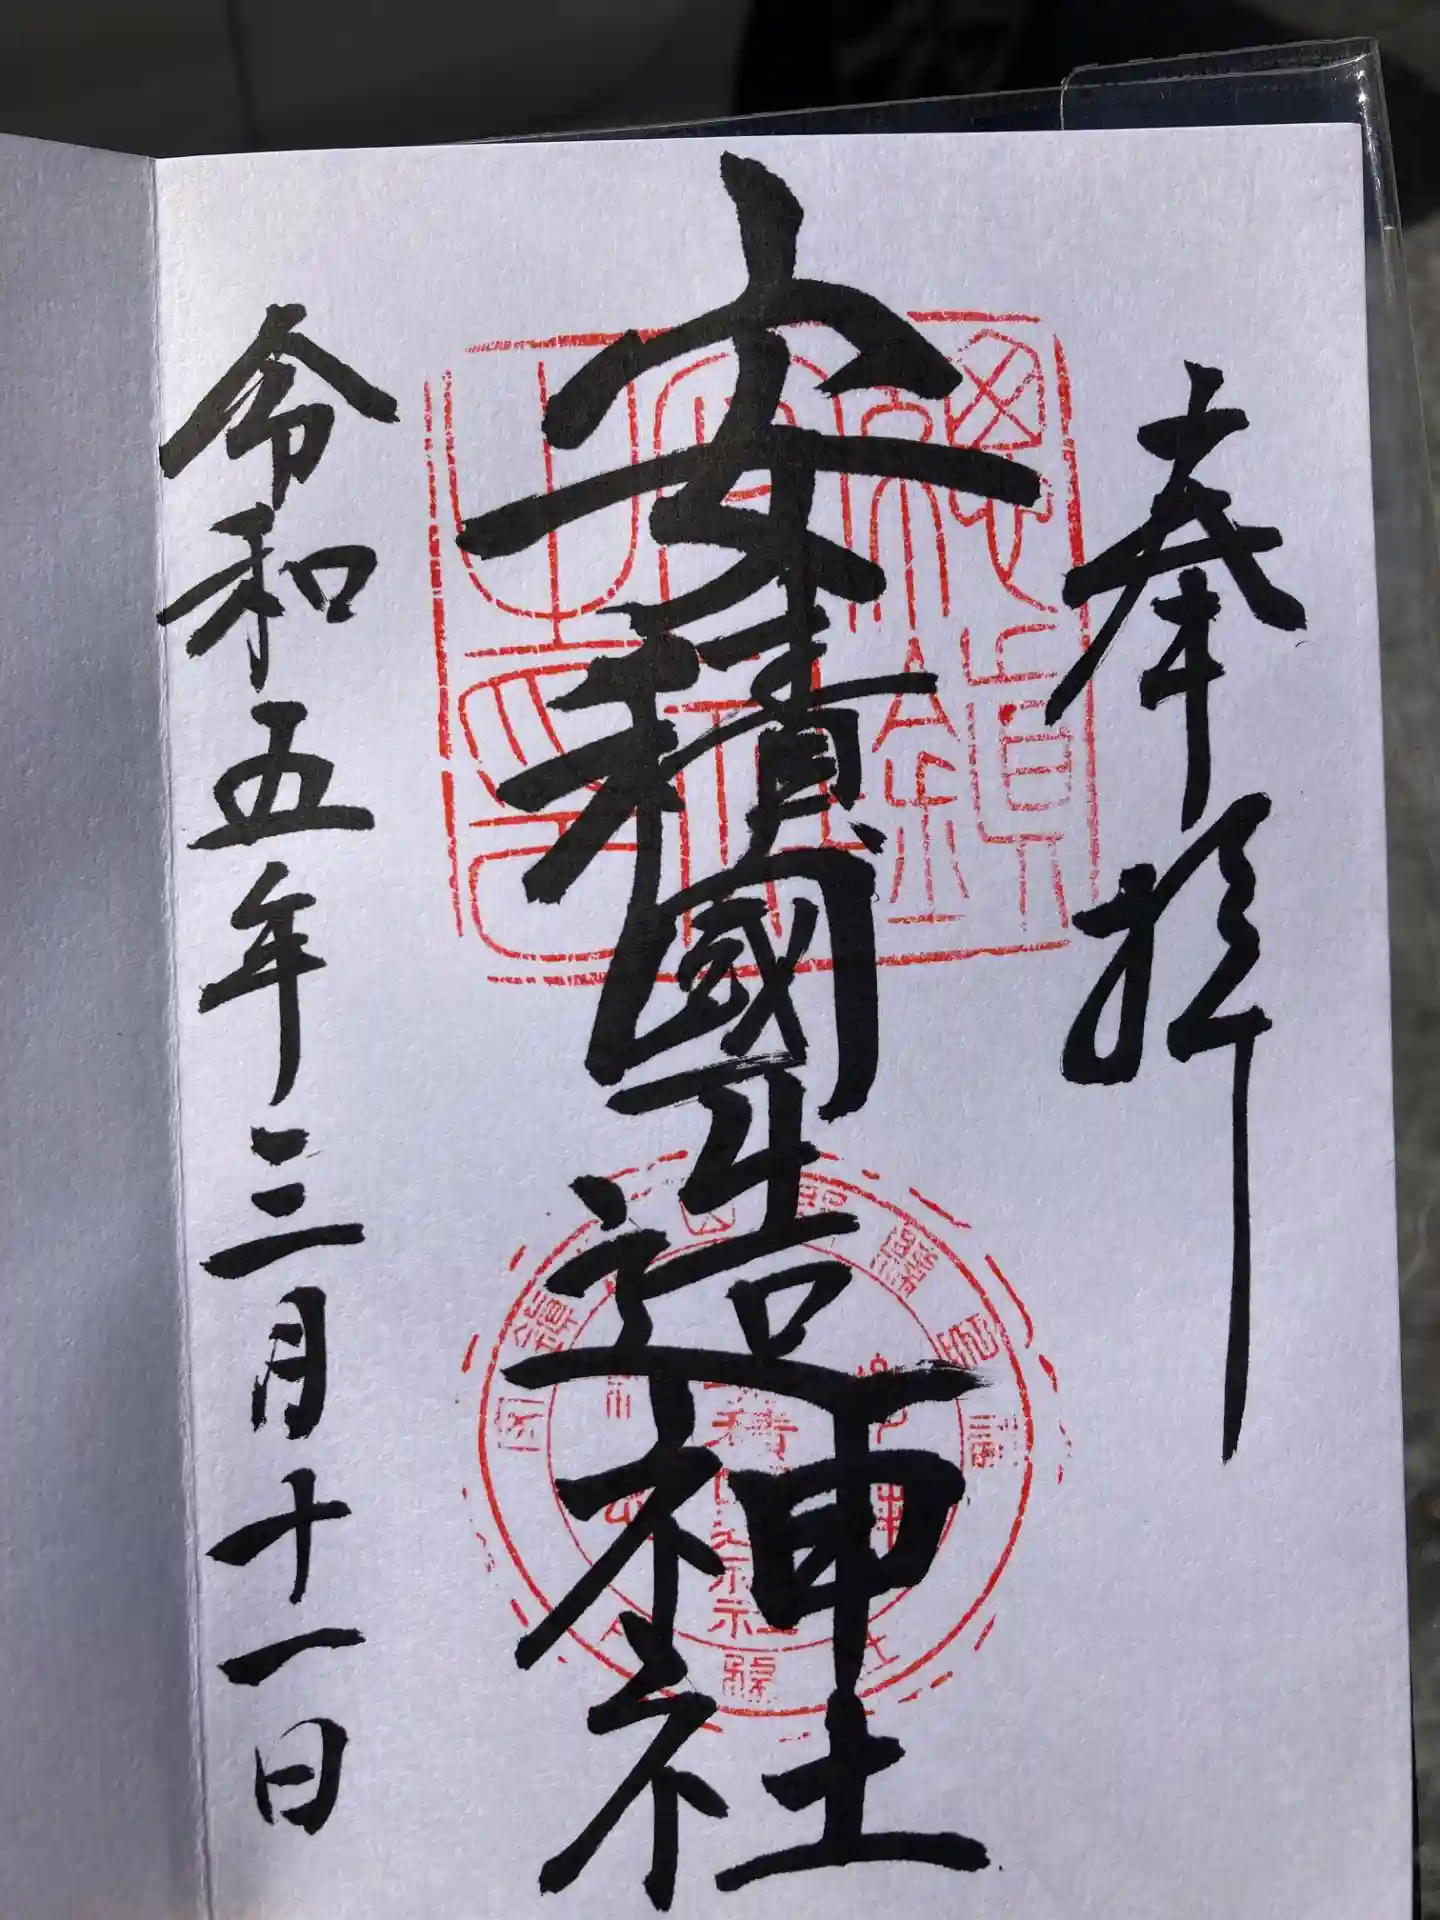 奉拝
安積國造神社
令和五年三月十一日